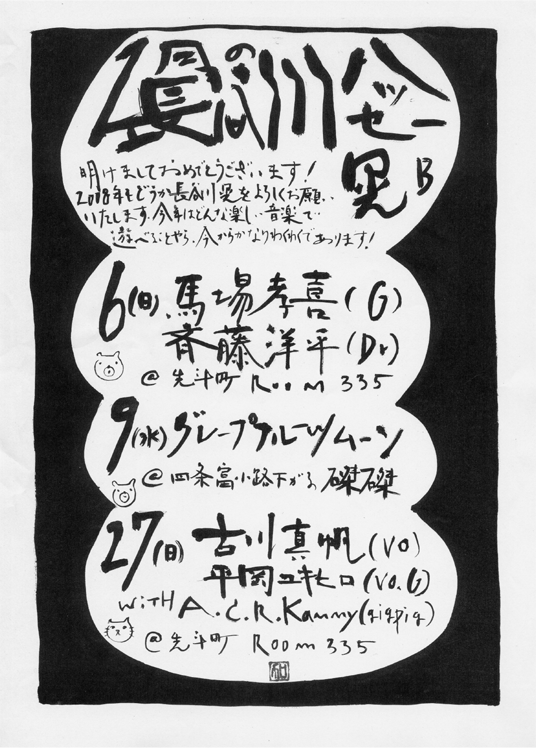 1の長谷川晃B
ハッセー
明けましておめでとうございます!
2008年もどうか長谷川晃をよろしくお願い
いたします。今年はどんな楽しい音楽で
遊べることやら、今からかなりわくわくであります!
6(日)馬場孝喜(G)
斉藤洋平(Dr)
@先斗町 Room 335
9(水)グレープフルーツムーン
@四条富小路下がる 磔磔
27(日)古川真帆(Vo)
平岡ユキヒロ(Vo.G)
WiTH A.C.R.Kammy(qiqpiq)
@先斗町 Room 335